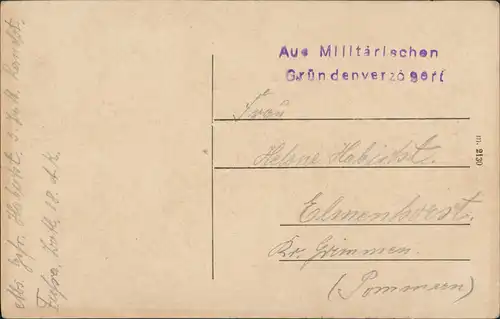 Aus Militärischen
Gründenverzögert
Frau
Helene Habicht.
Elmenhorst.
Kr. Grimmen.
(Pommern)
m. 2130
Abs. Gefr. Habicht. 3. Batt. Landst.
Fußa. Batl. 18. A.K.